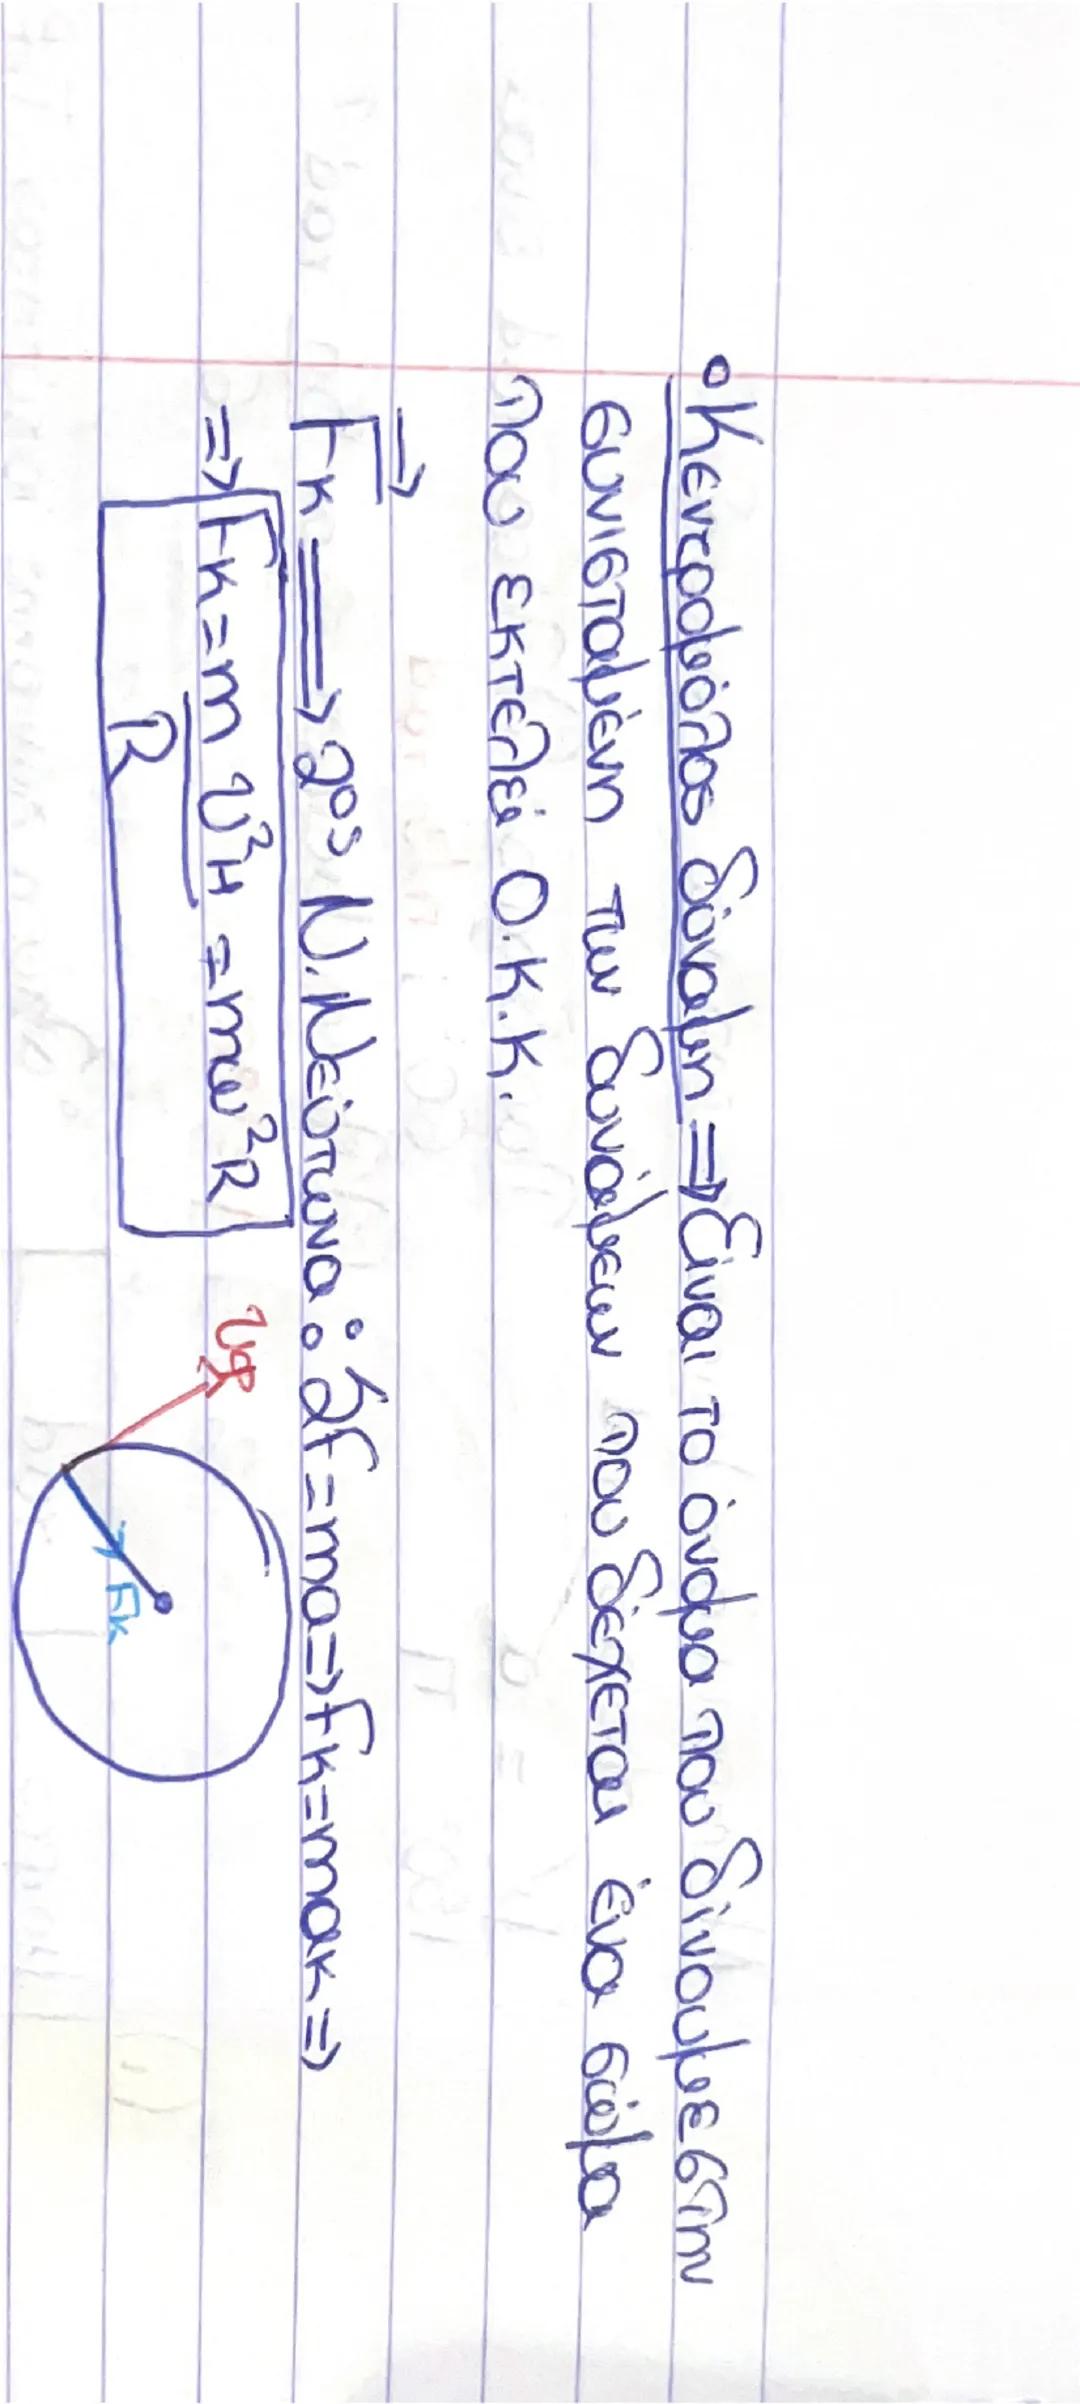 • Κεντρομόλος δύναμη ⇒ Είναι το όνομα που δίνουμε στην
συνισταμένη των δυνάμεων που δέχεται ένα σώμα
που εκτελεί Ο.Κ.Κ.
⇒
Fκ ⟹ 2ος Ν. Νεύτωνα: Σf = ma ⇒ Fκ = maκ ⇒
⇒ Fκ = m υ²H = mω²R
R
υγρ
Fκ